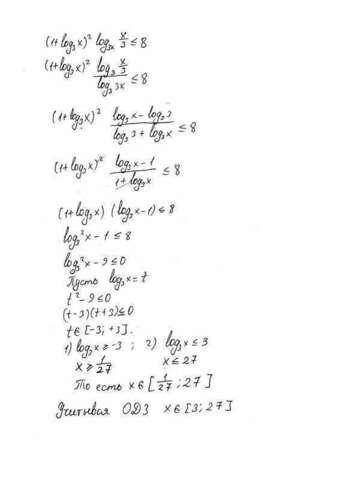 (1+log₃x)² log₃ₓ x/3 ≤ 8
(1+log₃x)² log₃ x/3 / log₃ 3x ≤ 8
(1+log₃x)² (log₃x - log₃3) / (log₃3 + log₃x) ≤ 8
(1+log₃x)² (log₃x - 1) / (1 + log₃x) ≤ 8
(1+log₃x) (log₃x - 1) ≤ 8
log₃²x - 1 ≤ 8
log₃²x - 9 ≤ 0
Пусть log₃x = t
t² - 9 ≤ 0
(t-3)(t+3) ≤ 0
t ∈ [-3; +3].
1) log₃x ≥ -3 ; 2) log₃x ≤ 3
x ≥ 1/27 x ≤ 27
То есть x ∈ [1/27 ; 27]
Учитывая ОДЗ x ∈ [3; 27]